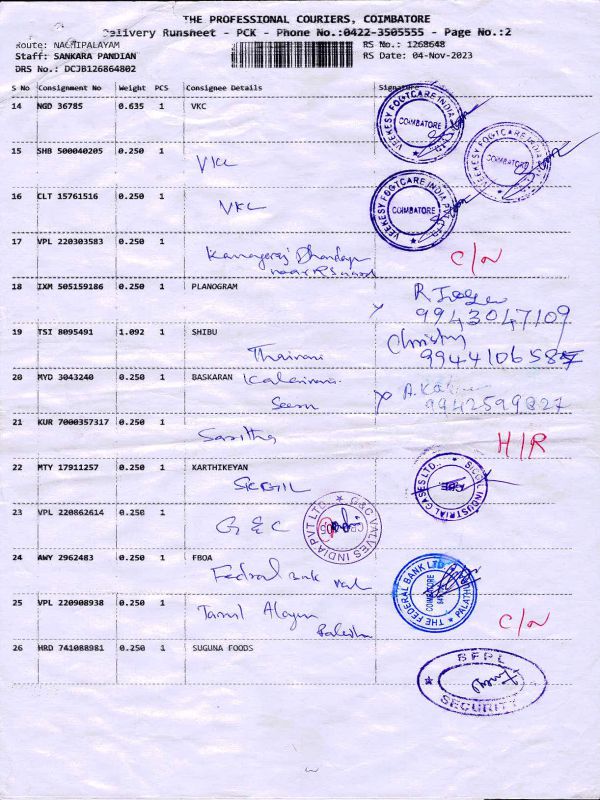 THE PROFESSIONAL COURIERS, COIMBATORE
Delivery Runsheet - PCK - Phone No.:0422-3505555 - Page No.:2
Route: NACHIPALAYAM RS No.: 1268648
Staff: SANKARA PANDIAN RS Date: 04-Nov-2023
DRS No.: DCJB126864802
S No Consignment No Weight PCS Consignee Details Signature
14 NGD 36785 0.635 1 VKC
VEEKESY FOOTCARE INDIA PVT LTD COIMBATORE
15 SHB 500040205 0.250 1
VKC
VEEKESY FOOTCARE INDIA PVT LTD COIMBATORE
16 CLT 15761516 0.250 1
VKC
VEEKESY FOOTCARE INDIA PVT LTD COIMBATORE
17 VPL 220303583 0.250 1
Kanagaraj
C/N
18 IXM 505159186 0.250 1 PLANOGRAM
9943047109
19 TSI 8095491 1.092 1 SHIBU
Christy
20 MYD 3043240 0.250 1 BASKARAN
9942599827
21 KUR 7000357317 0.250 1
Saritha
H/R
22 MTY 17911257 0.250 1 KARTHIKEYAN
SICGIL
SICGIL INDUSTRIAL GASES LTD.
23 VPL 220862614 0.250 1
G & C
G&C VALVES INDIA PVT LTD
24 AWY 2962483 0.250 1 FBOA
Fedral Bank
THE FEDERAL BANK LTD COIMBATORE
25 VPL 220908938 0.250 1
Tamil Alagan
C/N
26 HRD 741088981 0.250 1 SUGUNA FOODS
SFPL
SECURITY